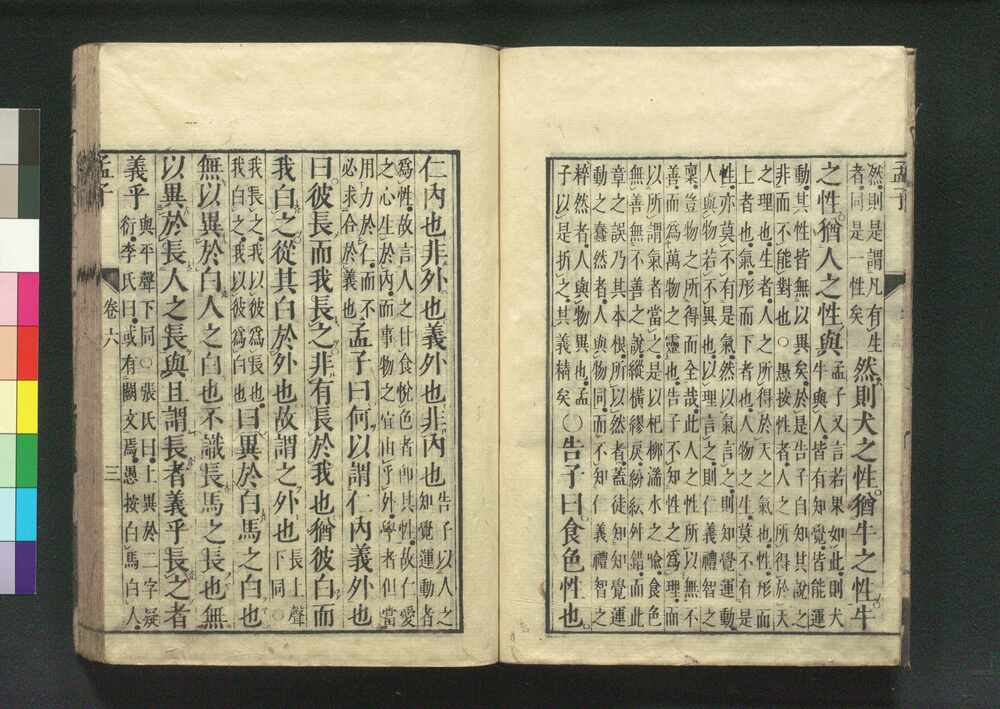 孟子
然則是謂凡有生
者同是一性矣
然則犬之性猶牛之性牛
之性猶人之性與
孟子又言若果如此則犬
牛與人皆有知覺皆能運
動其性皆無以異矣於是告子自知其說之
非而不能對也○愚按性者人之所得於天
之理也生者人之所得於天之氣也性形而
上者也氣形而下者也人物之生莫不有是
性亦莫不有是氣然以氣言之則知覺運動
人與物若不異也以理言之則仁義禮智之
稟豈物之所得而全哉此人之性所以無不
善而爲萬物之靈也告子不知性之爲理而
以所謂氣者當之是以杞柳湍水之喩食色
無善無不善之說縱橫繆戾紛紜舛錯而此
章之誤乃其本根所以然者蓋徒知知覺運
動之蠢然者人與物同而不知仁義禮智之
粹然者人與物異也孟
子以是折之其義精矣
○告子曰食色性也
仁內也非外也義外也非內也
告子以人之
知覺運動者
爲性故言人之甘食悅色者卽其性故仁愛
之心生於內而事物之宜由乎外學者但當
用力於仁而不
必求合於義也
孟子曰何以謂仁內義外也
曰彼長而我長之非有長於我也猶彼白而
我白之從其白於外也故謂之外也
長上聲
下同○
我長之我以彼爲長也
我白之我以彼爲白也
曰異於白馬之白也
無以異於白人之白也不識長馬之長也無
以異於長人之長與且謂長者義乎長之者
義乎
與平聲下同○張氏曰上異於二字疑
衍李氏曰或有闕文焉愚按白馬白人
孟子
卷六
三